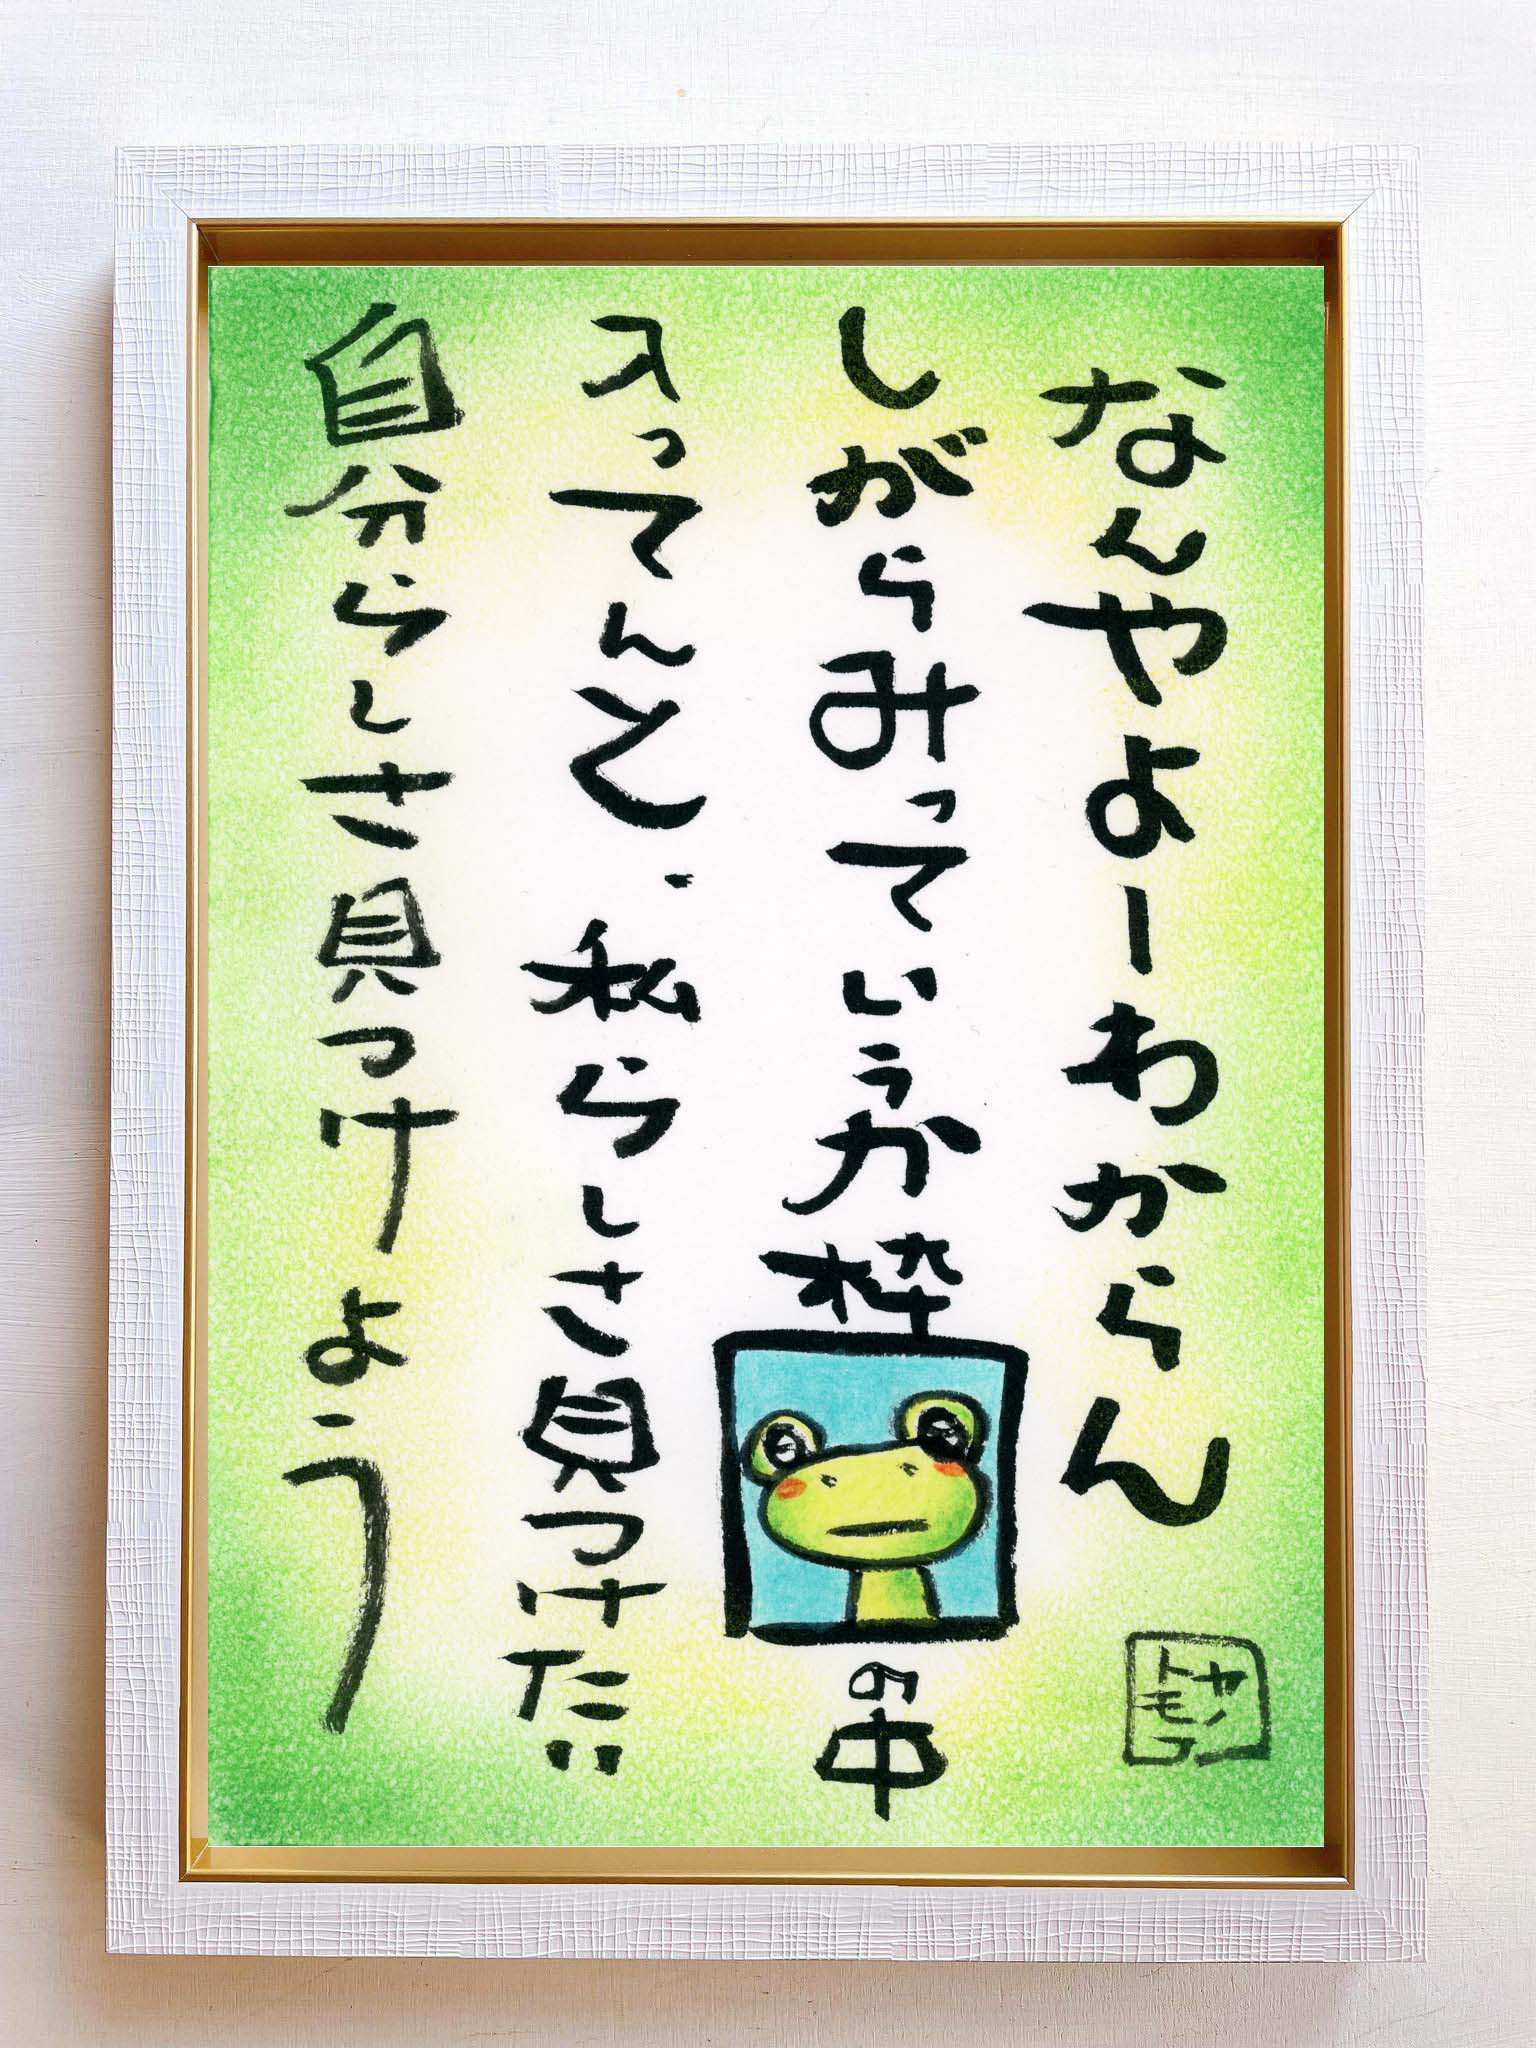 なんやよーわからん
しがらみっていうか枠の中
入ってんと、私らしさ見つけたい
自分らしさ見つけよう
トモコ